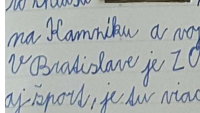 na Kamzíku a
V Bratislave je ZO
aj šport, je tu viac